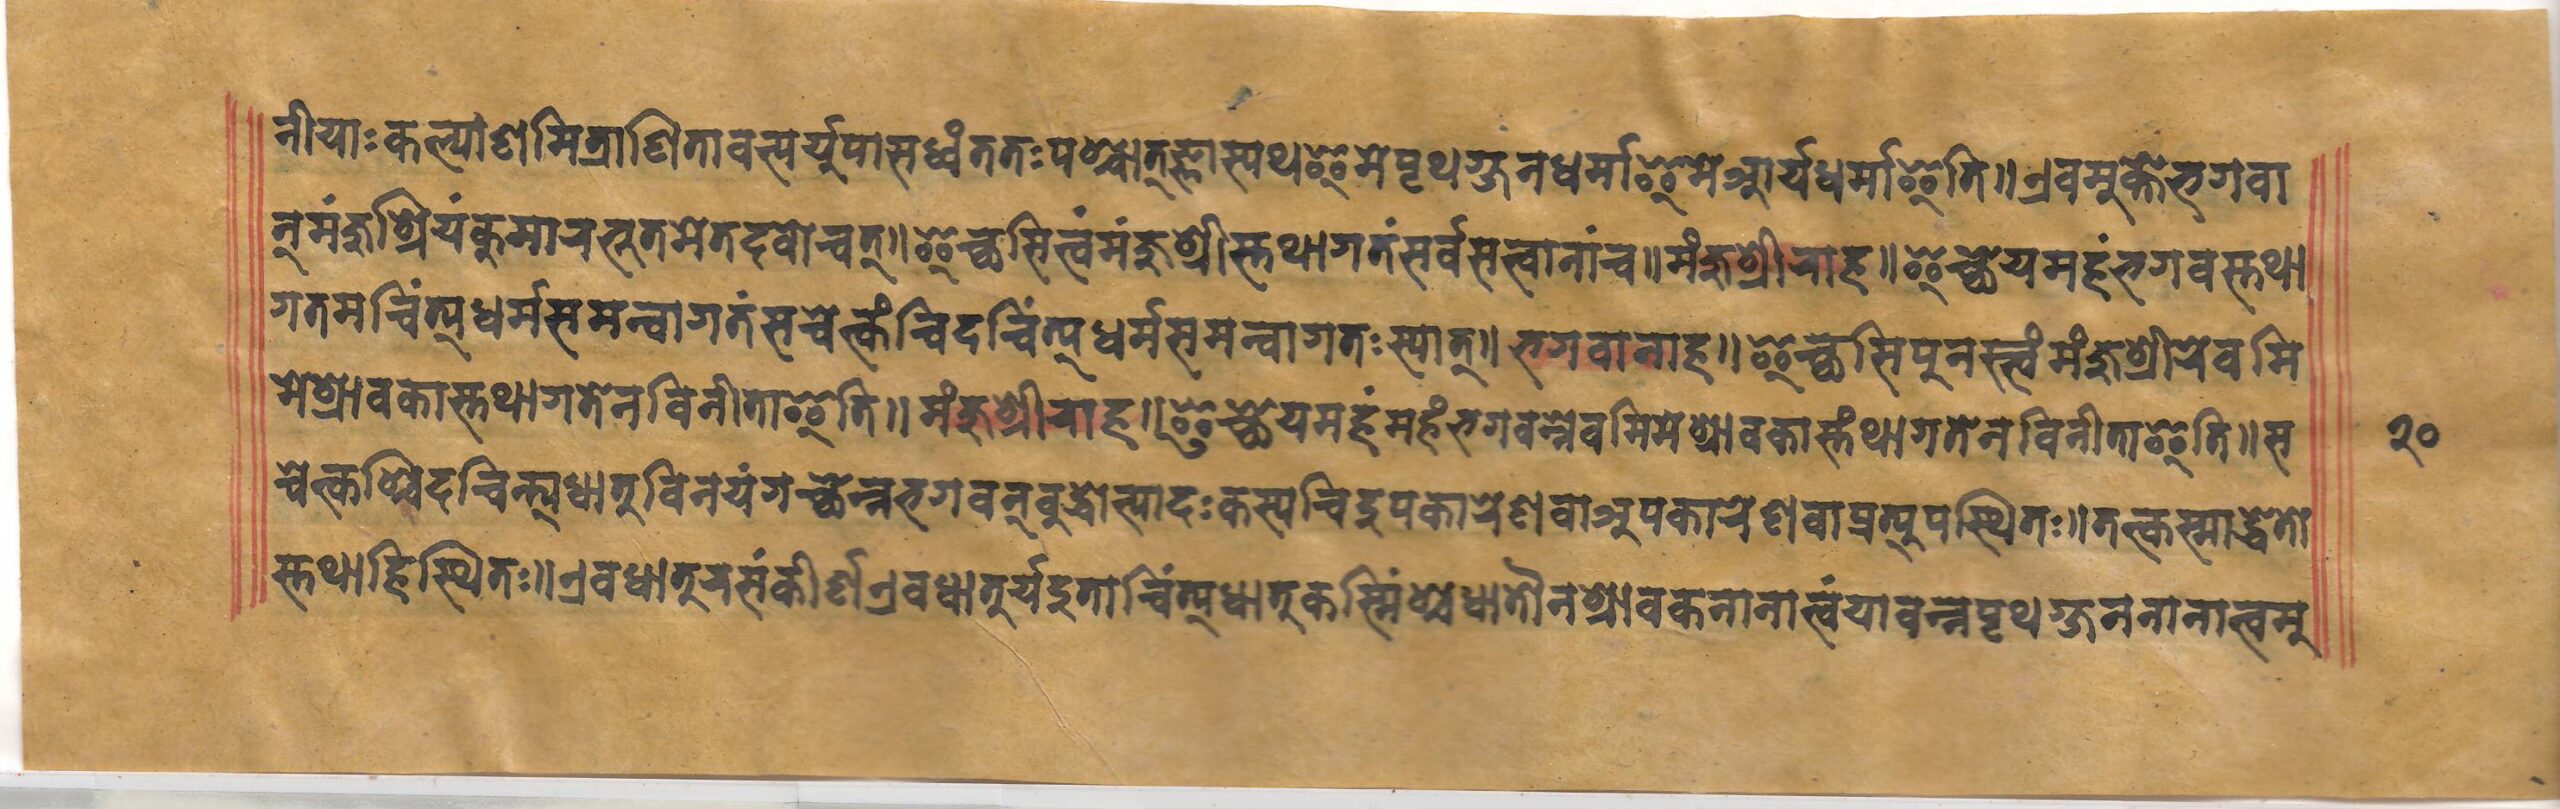 नीयाः कल्याणमित्राणि तावत्पर्युपासध्वं ततः पश्चात् ज्ञास्यथ इमे पृथग्जनधर्मा इमे आर्यधर्मा इति॥ एवमुक्ते भगवा
न् मंजुश्रियं कुमारभूतमेतदवोचत्॥ इच्छसि त्वं मंजुश्रीस्तथागतं सर्वसत्वानां च॥ मंजुश्रीराह॥ इच्छेयमहं भगवस्तथा
गतमचिंत्यधर्मसमन्वागतं सचेत्कंचिदचिंत्यधर्मसमन्वागतः स्यात्॥ भगवानाह॥ इच्छेसि पुनस्त्वं मंजुश्रीरेवमि
मे श्रावकास्तथागतेन विनीता इति॥ मंजुश्रीराह॥ इच्छेयमहंमहं भगवन्नेवमिमे श्रावकास्तंथागतेन विनीता इति॥ स
चेत्कश्चिदचिन्त्यधातुविनयं गच्छेन्न भगवन् बुद्धोत्पादः कस्यचिदुपकारेण वा अपकारेण वा प्रत्युपस्थितः॥ तत्कस्माद्धेतो
स्तथा हि स्थितः॥ एव धातुरसंकीर्ण एव धातुर्यदुताचिंत्यधातुकस्मिंश्च धातौ न श्रावकनानात्वं यावन्न पृथग्जननानात्वमु
२०